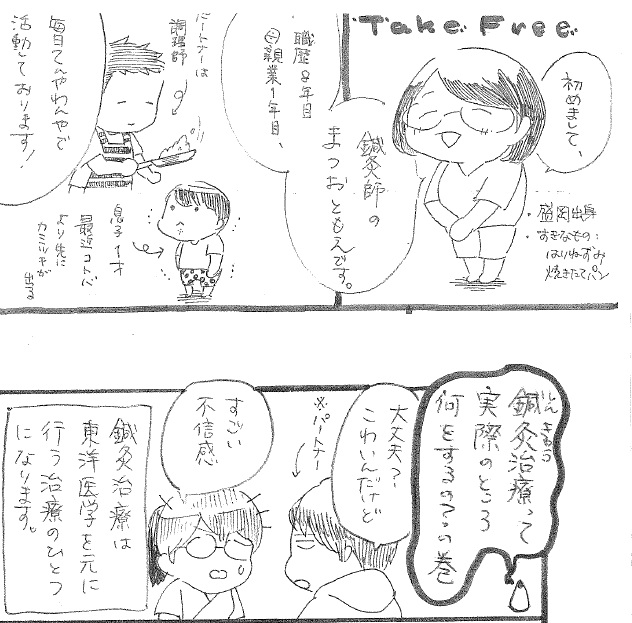 Take Free
初めまして、
鍼灸師の
まつおともえです。
・盛岡出身
・すきなもの：
はりねずみ
焼きたてパン
職歴8年目
母親業1年目、
パートナーは
調理師
毎日てんやわんやで
活動しております！
息子1才
最近コトバ
より先に
カミツキが
出る
鍼灸治療って
しんきゅう
実際のところ
何をするの？の巻
大丈夫？
こわいんだけど
※パートナー
すごい
不信感
鍼灸治療は
東洋医学を元に
行う治療のひとつ
になります。